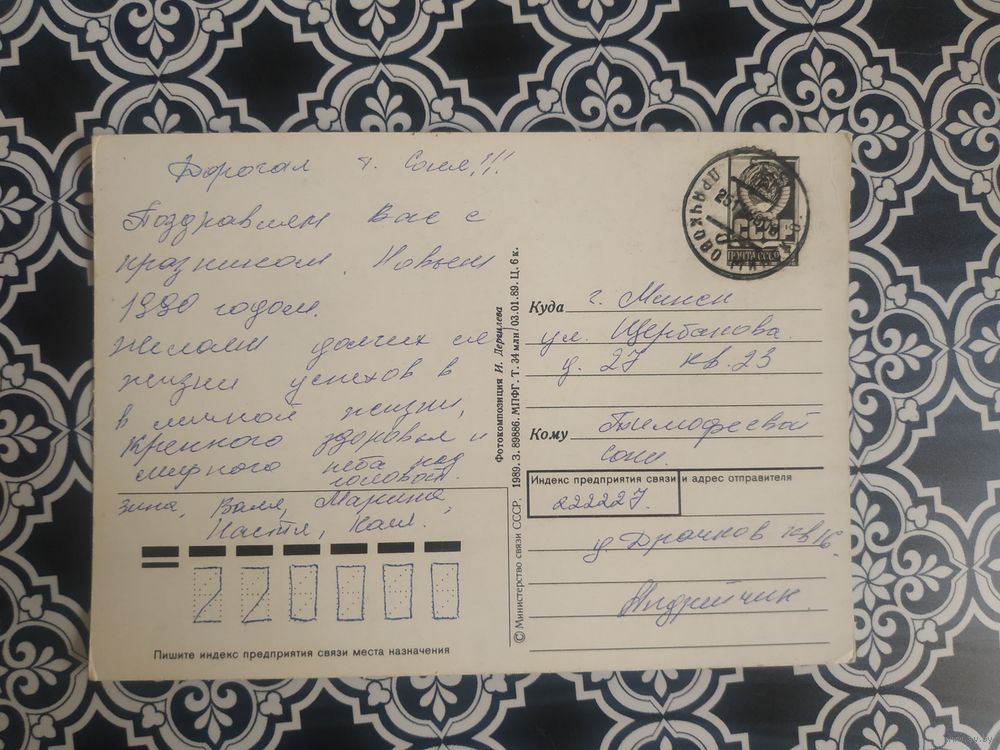 Дорогая т. Соня!!!
Поздравляем Вас с
праздником. Новым
1990 годом.
Желаем долгих лет
жизни успехов в
в личной жизни,
Крепкого здоровья и
мирного неба над
головой.
Зина, Валя, Марина,
Настя, Коля.
220000
Пишите индекс предприятия связи места назначения
© Министерство связи СССР. 1989. З. 89886. МПФГ. Т. 34 млн. 03.01.89. Ц. 6 к.
Фотокомпозиция И. Дергилева
ПОЧТА СССР
Куда г. Минск
ул. Щербакова.
д. 27 кв. 23
Кому Тимофеевой
Сони.
Индекс предприятия связи и адрес отправителя
222227.
д. Драчков кв 16.
Андрейчик.